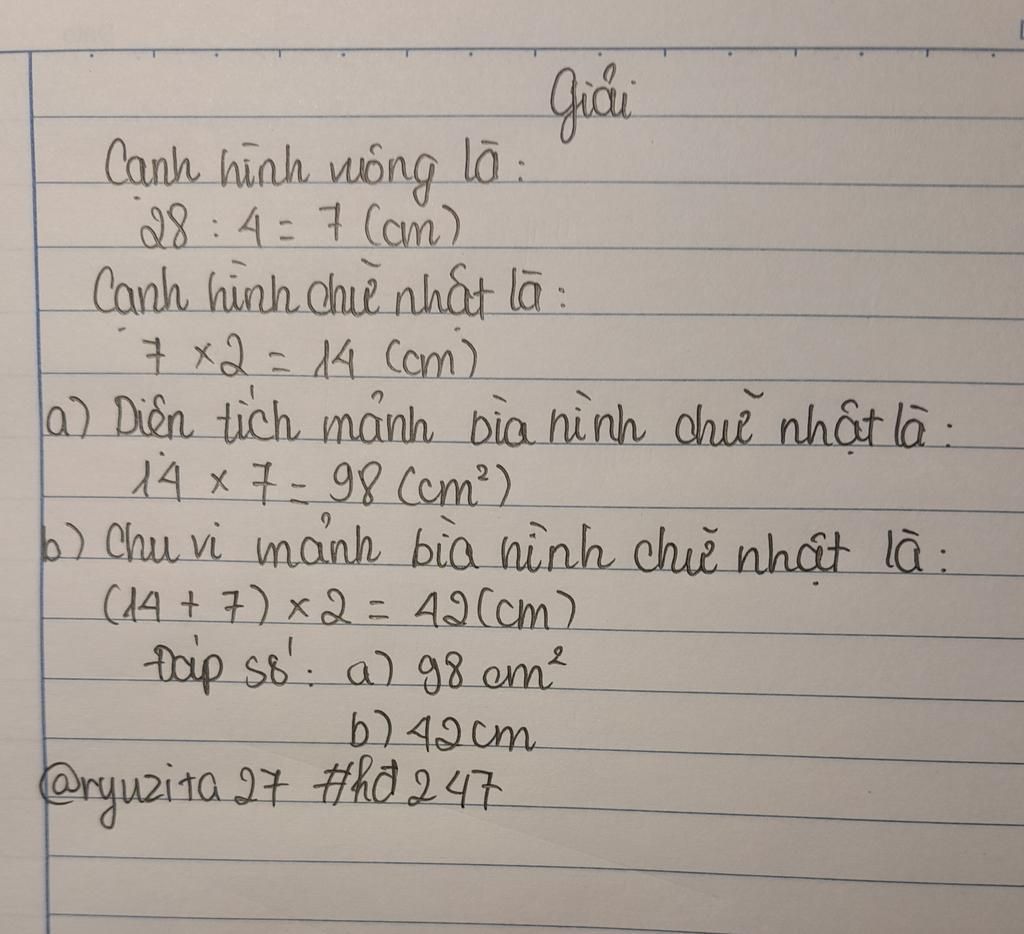 Giải
Cạnh hình vuông là:
28 : 4 = 7 (cm)
Cạnh hình chữ nhật là:
7 × 2 = 14 (cm)
a) Diện tích mảnh bìa hình chữ nhật là:
14 × 7 = 98 (cm²)
b) Chu vi mảnh bìa hình chữ nhật là:
(14 + 7) × 2 = 42 (cm)
Đáp số: a) 98 cm²
b) 42 cm
@ryuzita 27 #hđ 247